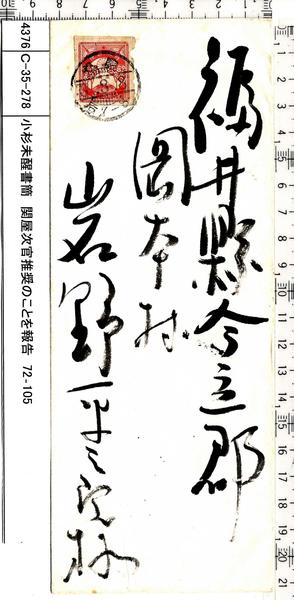 福井縣今立郡
岡本村
岩野平三郎様
4376 C-35-278 小杉未醒書簡 関屋次官推奨のことを報告 72-105